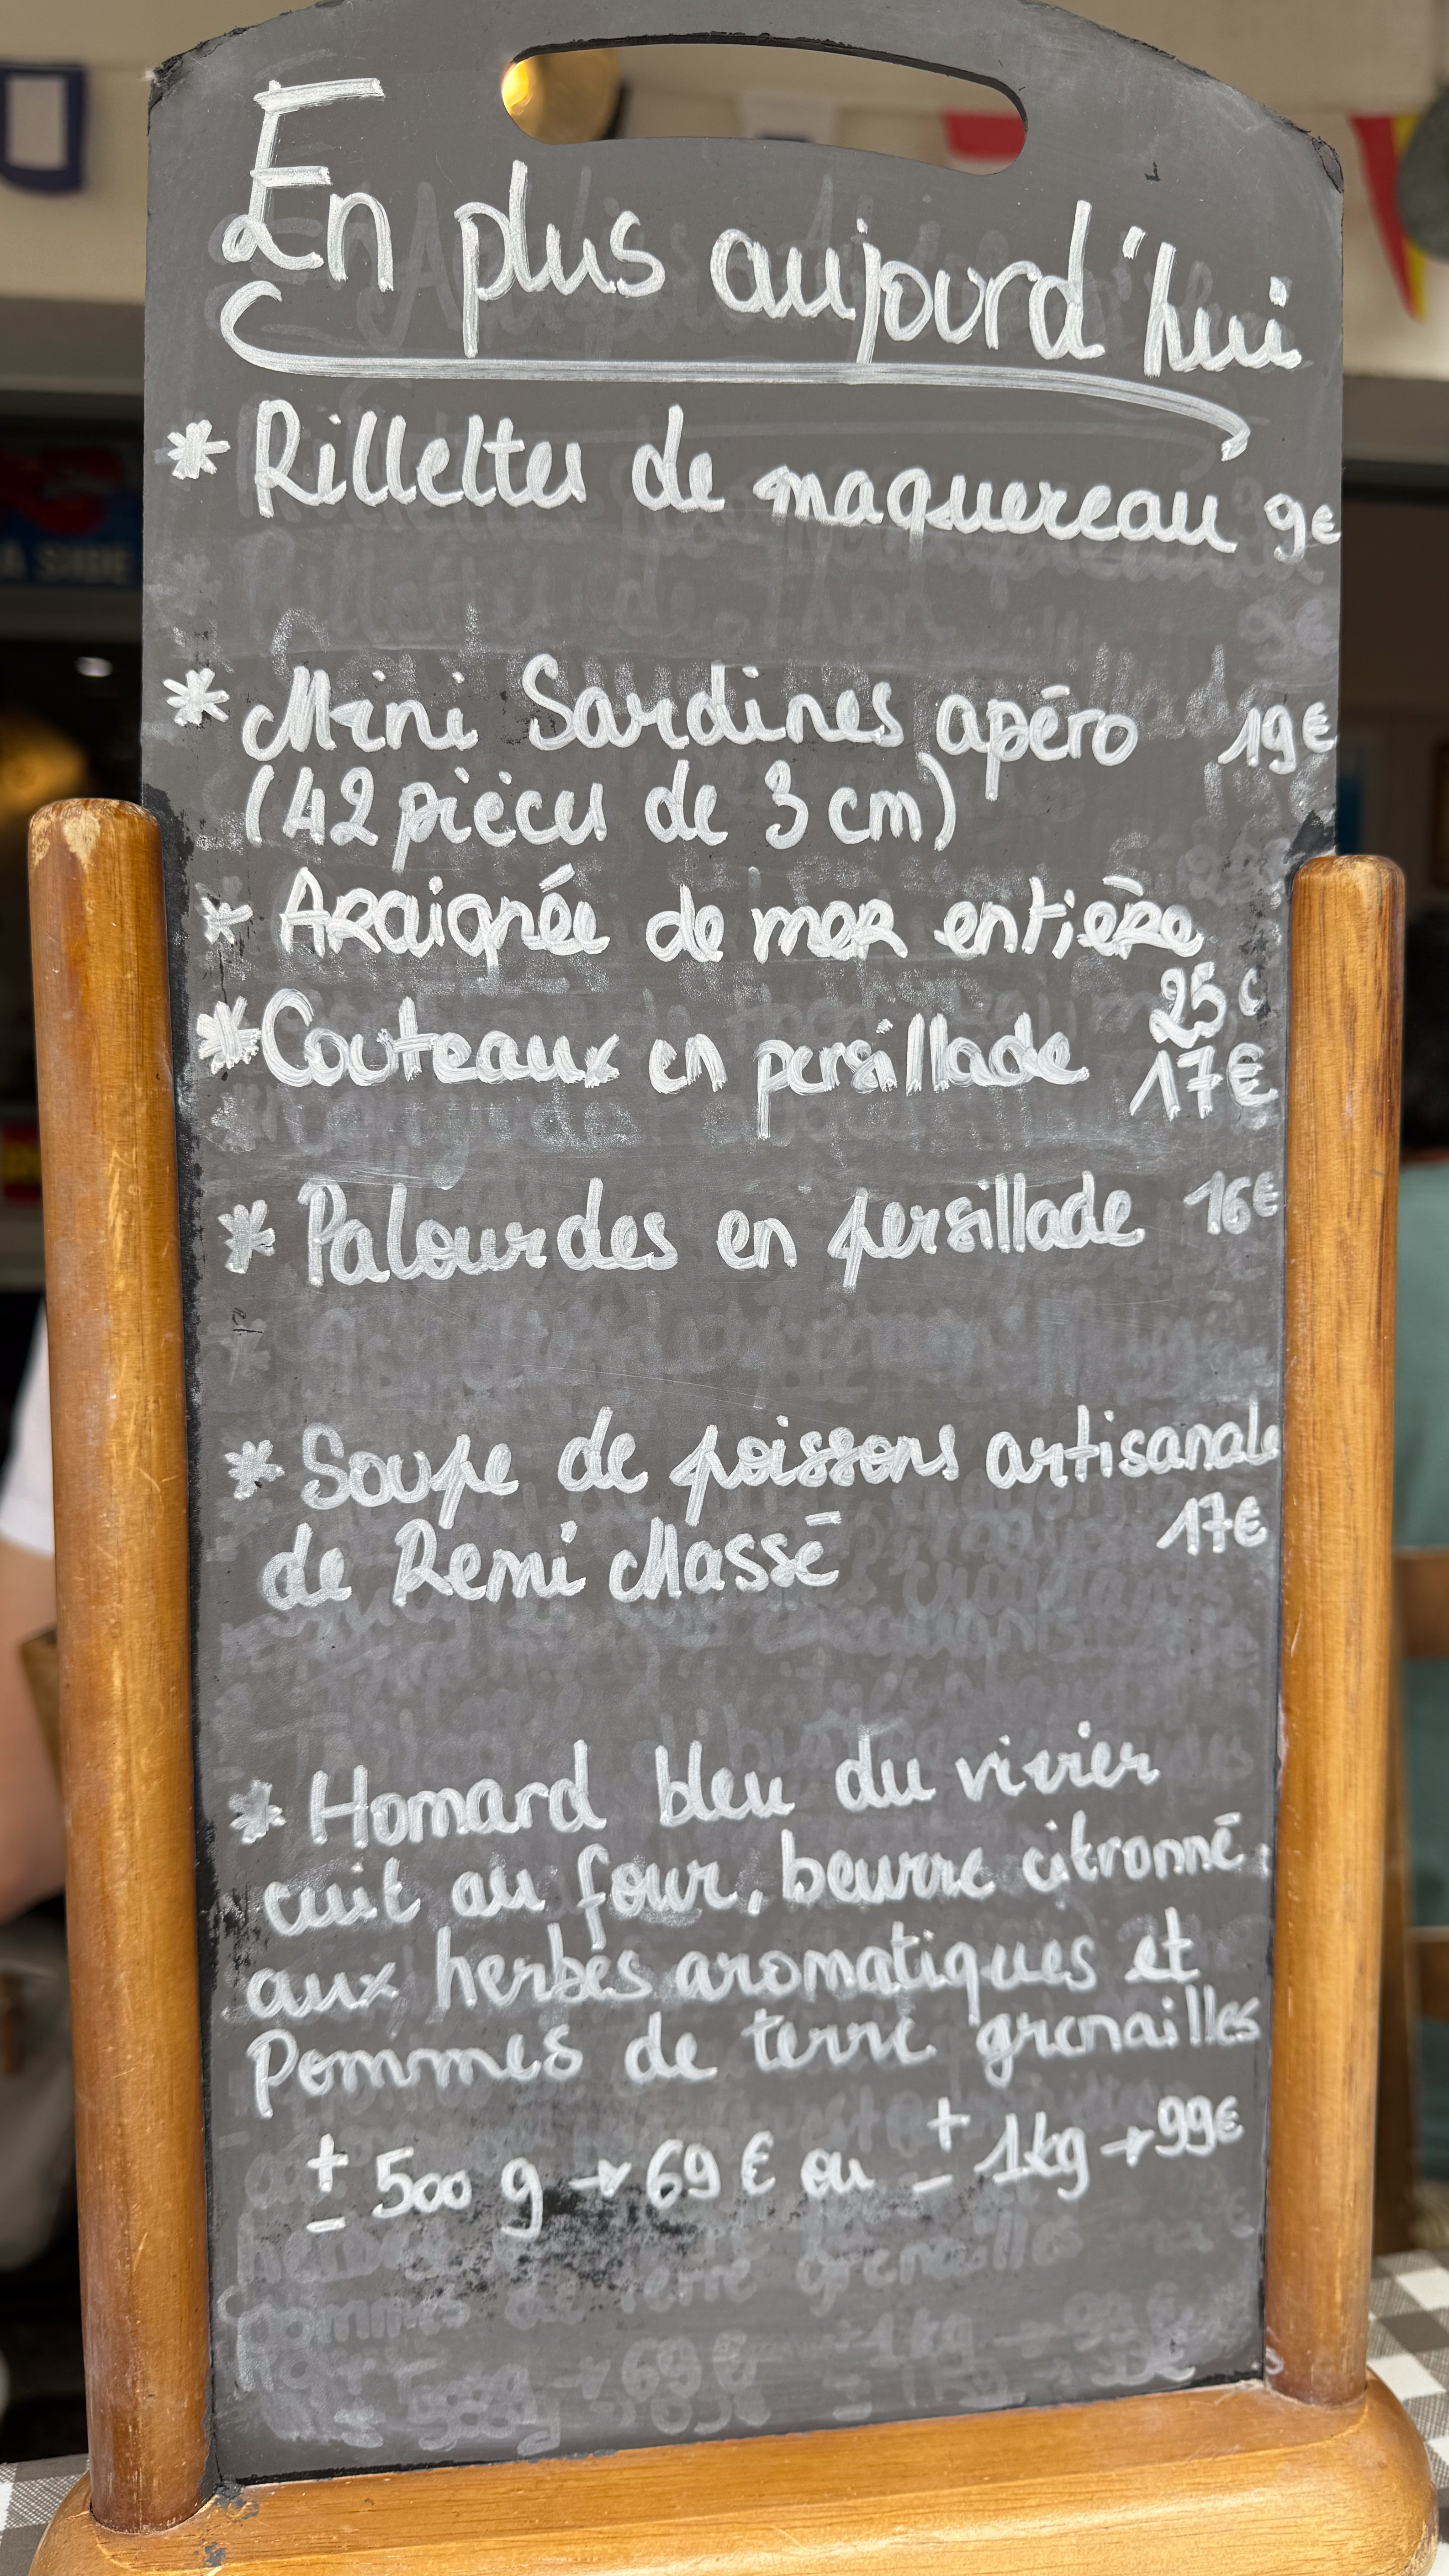 En plus aujourd'hui
* Rillettes de maquereau 9€
* Mini Sardines apéro 19€
(42 pièces de 3 cm)
* Araignée de mer entière
25€
* Couteaux en persillade 17€
* Palourdes en persillade 16€
* Soupe de poissons artisanale
17€
de Remi Massé
* Homard bleu du vivier
cuit au four, beurre citronné
aux herbes aromatiques et
Pommes de terre grenailles
± 500 g → 69 € ou ± 1kg → 99€
A SIDE